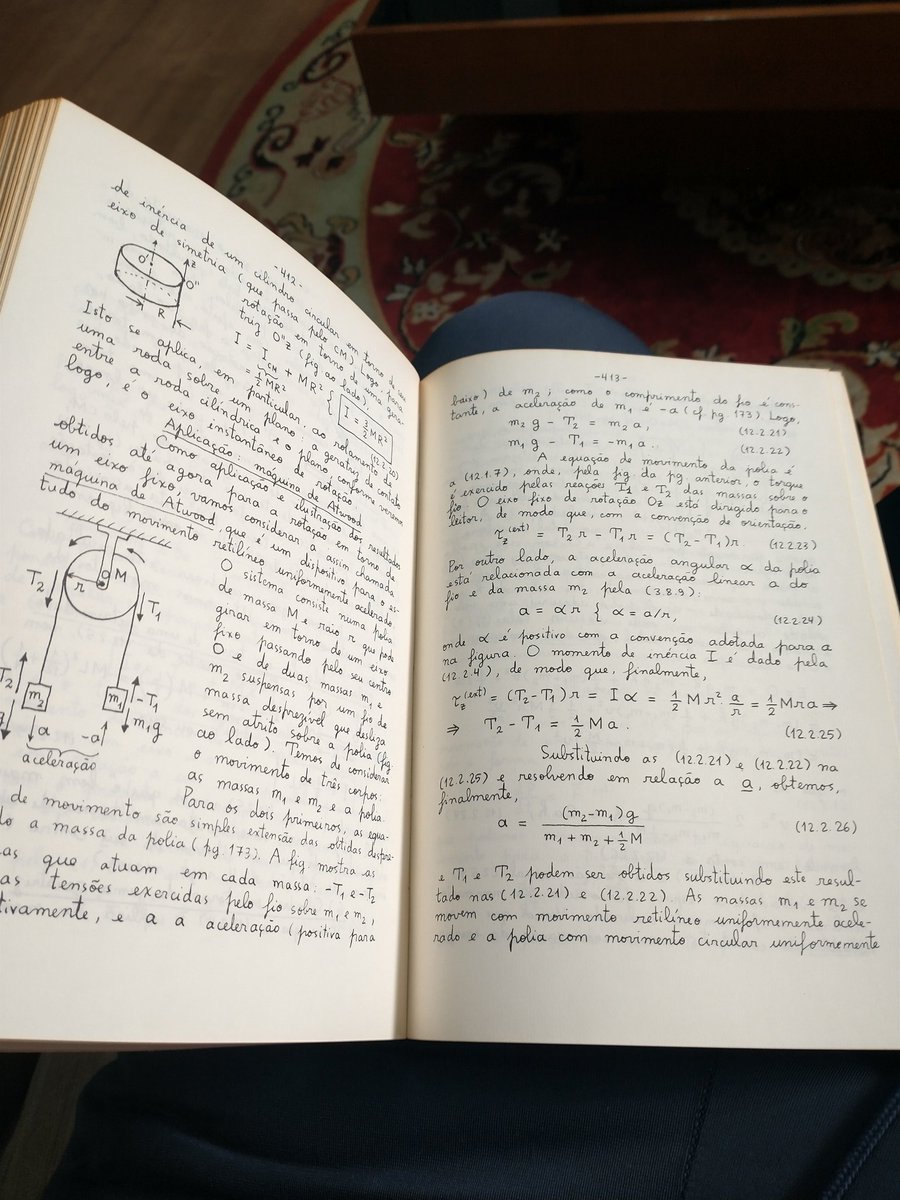 -412-
de inércia de um cilindro circular em torno de seu
eixo de simetria (que passa pelo CM). Logo, para
rotação em torno de uma gera-
triz O"z (fig ao lado),
I = I_CM + MR² { I = 3/2 MR²
= 1/2 MR²
(12.2.20)
O'
z
O"
R
Isto se aplica, em particular, ao rolamento de
uma roda sobre um plano: a geratriz de contato
entre a roda cilíndrica e o plano, conforme veremos
logo, é o eixo instantâneo de rotação.
Aplicação: máquina de Atwood
Como aplicação e ilustração dos resultados
obtidos até agora para a rotação em torno de
um eixo fixo vamos considerar a assim chamada
máquina de Atwood, que é um dispositivo para o es-
tudo do movimento retilíneo uniformemente acelerado.
O sistema consiste numa polia
de massa M e raio r que pode
girar em torno de um eixo
fixo passando pelo seu centro
O e de duas massas m₁ e
m₂ suspensas por um fio de
massa desprezível que desliza
sem atrito sobre a polia (fig.
ao lado). Temos de considerar
o movimento de três corpos:
as massas m₁ e m₂ e a polia.
Para os dois primeiros, as equa-
M
r
T₂
T₁
T₂
m₂
m₁
-T₁
m₁g
g
a
-a
aceleração
de movimento são simples extensão das obtidas despre-
do a massa da polia (pg. 173). A fig. mostra as
as que atuam em cada massa: -T₁ e -T₂
as tensões exercidas pelo fio sobre m₁ e m₂,
tivamente, e a a aceleração (positiva para
-413-
baixo) de m₂; como o comprimento do fio é cons-
tante, a aceleração de m₁ é -a (cf. pg. 173). Logo,
m₂g - T₂ = m₂a, (12.2.21)
m₁g - T₁ = -m₁a. (12.2.22)
A equação de movimento da polia é
a (12.1.7), onde, pela fig. da pg. anterior, o torque
é exercido pelas reações T₁ e T₂ das massas sobre o
fio. O eixo fixo de rotação Oz está dirigido para o
leitor, de modo que, com a convenção de orientação,
τ_z^(ext) = T₂r - T₁r = (T₂-T₁)r. (12.2.23)
Por outro lado, a aceleração angular α da polia
está relacionada com a aceleração linear a do
fio e da massa m₂ pela (3.8.9):
a = αr { α = a/r, (12.2.24)
onde α é positivo com a convenção adotada para a
na figura. O momento de inércia I é dado pela
(12.2.4), de modo que, finalmente,
τ_z^(ext) = (T₂-T₁)r = Iα = 1/2 Mr² · a/r = 1/2 Mra ⇒
⇒ T₂ - T₁ = 1/2 Ma. (12.2.25)
Substituindo as (12.2.21) e (12.2.22) na
(12.2.25) e resolvendo em relação a a, obtemos,
finalmente,
a = (m₂-m₁)g / (m₁+m₂+1/2M) (12.2.26)
e T₁ e T₂ podem ser obtidos substituindo este resul-
tado nas (12.2.21) e (12.2.22). As massas m₁ e m₂ se
movem com movimento retilíneo uniformemente acele-
rado e a polia com movimento circular uniformemente